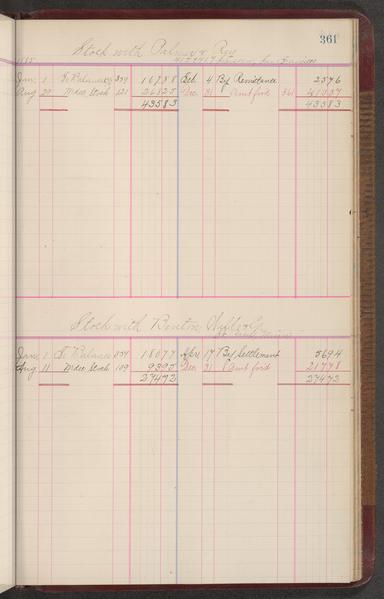 361
Stock with Palmer & Rey
1885
Jan. 1 To Balance 359 16758 Feb 4 By Remittance 2576
Aug 29 " Mdse Stock 121 26825 Dec. 31 " Amt ford 361 41007
43583 43583
Stock with Benton,
Jan. 1 To Balance 359 18077 Apr. 17 By Settlement 5694
Aug 11 " Mdse Stock 109 9395 Dec. 31 " Amt ford 21778
27472 27472